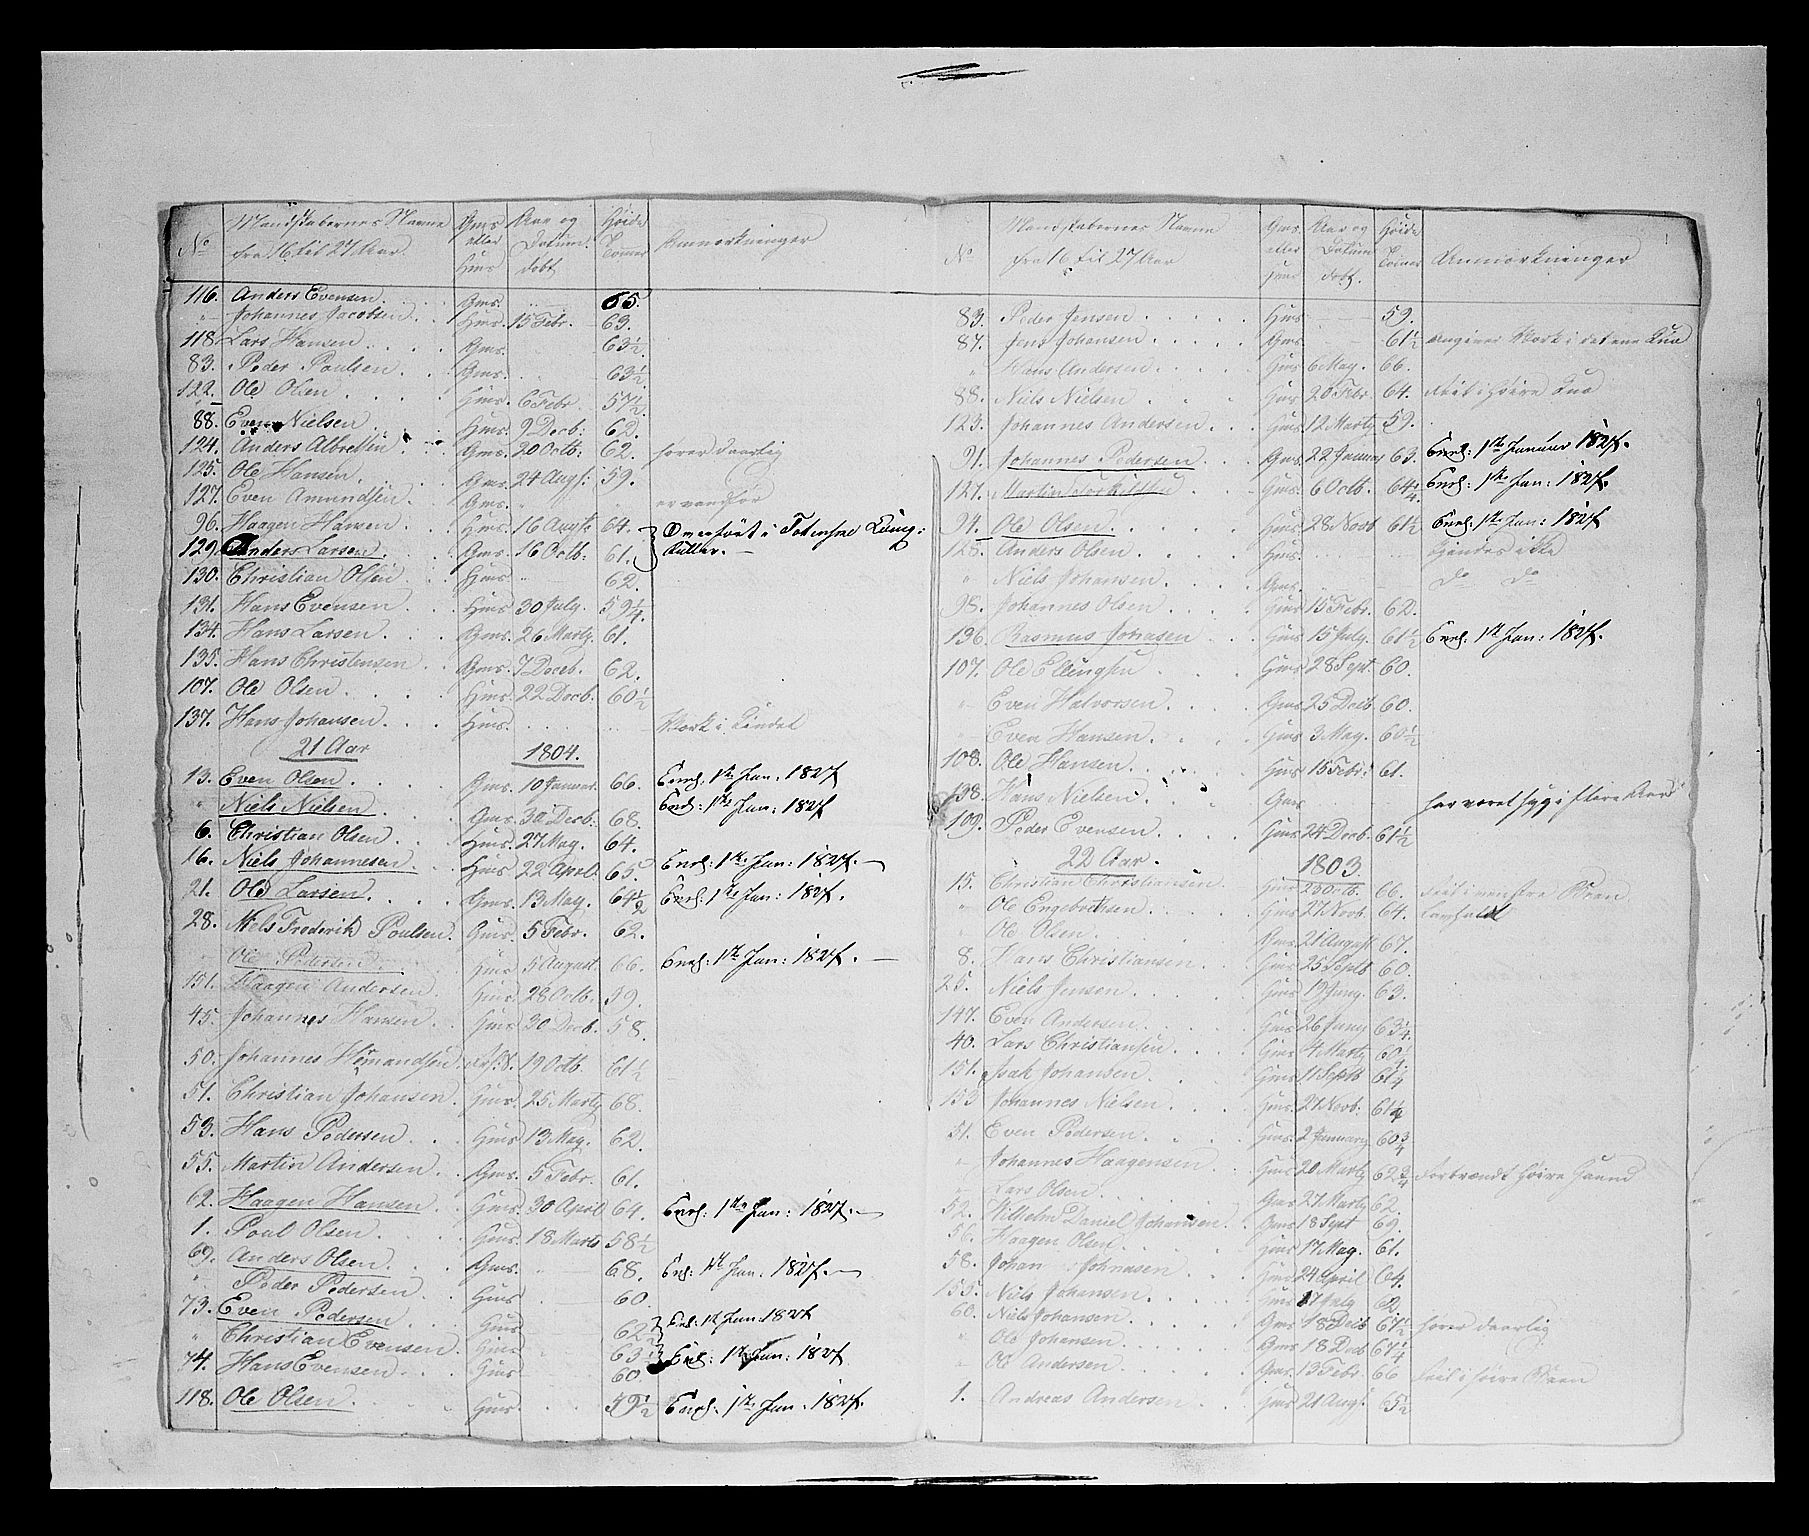 No Mandskabernes Navne fra 16 til 27 Aar Gms eller Hms Aar og Datum dobt Høide Tommer Anmærkninger
116. Anders Evensen Gms. 65.
" Johannes Jacobsen Hms. 15 Febr. 63.
118 Lars Hansen Gms. 63½
83. Peder Poulsen Gms. 63½
122. Ole Olsen Hms. 6 Febr. 57½
88. Even Nielsen Hms. 9 Decb. 62.
124. Anders Albretsen Gms. 20 Octb: 62. hører daarlig
125. Ole Hansen Gms. 24 Augs: 59.
127. Even Amundsen Gms. er vanfør
96. Haagen Hansen Hms. 16 Augst. 64.
129. Anders Larsen Gms. 16 Octb: 61.
130. Christian Olsen Hms 62
131. Hans Evensen Hms 30 July. 59¼
134. Hans Larsen Gms. 26 Marty. 61.
135. Hans Christensen Gms. 7 Deceb. 62.
107. Ole Olsen Hms. 22 Decb. 60½
137. Hans Johansen Hms.
21 Aar 1804.
13. Even Olsen Gms. 10 Januar. 66. Enrl: 1ste Jan: 1827
" Niels Nielsen Gms. 30 Decb: 68. Enrl: 1ste Jan: 1827
6. Christian Olsen Hms. 27 May. 64.
16. Niels Johannesen Hms 22 April. 65. Enrl: 1ste Jan: 1827.
21. Ole Larsen Gms. 13 May. 64½ Enrl: 1ste Jan: 1827.
28. Niels Frederik Poulsen. Gms. 5 Febr. 62.
Ole Pedersen Hms 5 August 66. Enrl: 1ste Jan: 1827.
151. Haagen Andersen Hms. 28 Octb. 59.
45. Johannes Hansen Hms. 30 Decb. 58.
50. Johannes 19 Octb. 61½
51. Christian Johansen Hms. 25 Marty 68.
53. Hans Pedersen Hms 13 May. 62.
55. Martin Andersen Gms. 5 Febr. 61.
62. Haagen Hansen Hms. 30 April 64. Enrl: 1ste Jan: 1827.
1. Poul Olsen Hms. 18 Marts 58½
69. Anders Olsen Gms. 68. Enrl: 1ste Jan. 1827.
" Peder Pedersen Hms 60.
73. Even Pedersen Hms 62½ Enrl: 1st Jan: 1827
" Christian Evensen Hms 63½ Enrl: 1ste Jan: 1827
74. Hans Evensen Hms 60.
118. Ole Olsen Hms. 59½ Enrl: 1ste Jan: 1827.
No Mandskabernes Navne fra 16 til 27 Aar Gms. eller Hms Aar og Datum dobt. Høide Tommer Anmærkninger
83. Peder Jensen Hms 59.
87. Jens Johansen Gms. 61½
" Hans Andersen Hms 6 May. 66.
88. Niels Nielsen Hms 20 Febr. 64.
123. Johannes Andersen Gms 12 Marty 59.
91. Johannes Pedersen Gms. 22 Januar 63. Enrl: 1ste Januar 1827.
127. Martin Torkilsen Gms. 6 Octb. 64¼ Enrl: 1ste Jan: 1827.
94. Ole Olsen Hms. 28 Novb 61½ Enrl: 1ste Jan: 1827
128. Anders Olsen Hms. kjendes ikke
" Niels Johansen Gms. do do
98. Johannes Olsen Hms 15 Febr. 62.
136. Rasmus Johnsen Hms 15 July. 61½ Enrl: 1st Jan: 1827.
107. Ole Ellingsen Hms 28 Sept. 60.
Even Halvorsen Gms 25 Decb 60.
Even Hansen Gms 3 May. 60½
108. Ole Hansen Hms 15 Febr: 61.
138. Hans Nielsen Gms har været syg i flere Aar
109. Peder Evensen Hms 24 Decb. 61½
22 Aar. 1803.
15. Christian Christiansen Hms 23 Octb. 66.
" Ole Engebretsen Hms 27 Novb. 64.
" Ole Olsen Gms 21 August 67.
8. Hans Christiansen Hms 25 Septb 60.
25. Niels Jensen Hms 19 Juny. 63.
147. Even Andersen Hms 26 Juny 63¼
40. Lars Christiansen Hms 4 Marty 60½
151. Isak Johansen Hms 11 Septb 61¼
153 Johannes Nielsen Hms. 27 Novb. 61¼
51. Even Pedersen Hms. 2 January 60¾
" Johannes Haagensen Hms 20 Marty 62¾ forbrændt høire Haand
" Lars Olsen Gms 27 Marty 62.
52. Wilhelm Daniel Johansen Gms 18 Sept 69.
56. Haagen Olsen Hms 17 May. 61.
58. Johan Johnasen Hms 24 April 64.
155. Niels Johansen Hms 17 July 62
60. Niels Johansen Gms 18 Decb 67½ hører daarlig
" Ole Johansen Gms 18 Decb 67¼
" Ole Andersen Gms. 13 Febr. 66
1. Andreas Andersen Hms 21 Augs. 65½